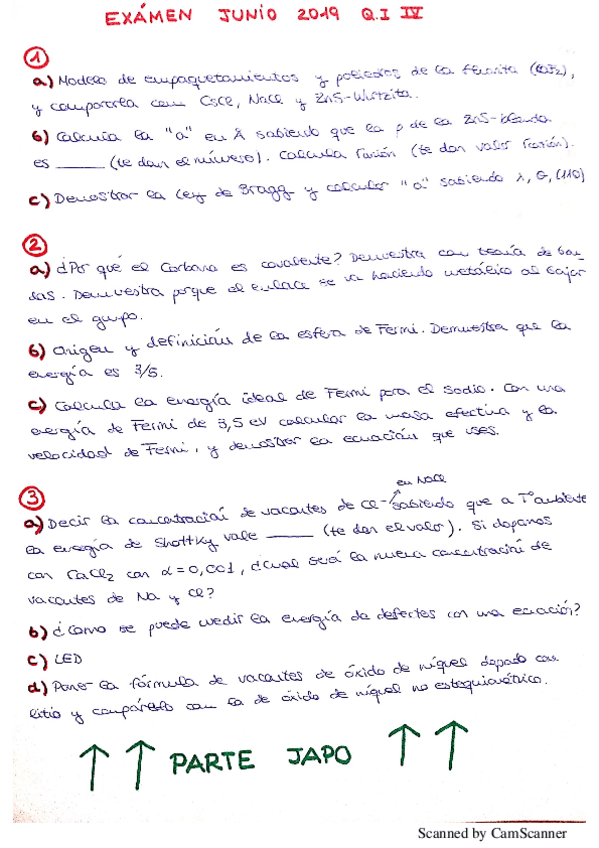 EXÁMEN JUNIO 2019 Q.I IV
1
a) Modelo de empaquetamientos y poliedros de la fluorita (CaF2),
y compararla con CsCl, NaCl y ZnS-Wurtzita.
b) Calcula la "a" en Å sabiendo que la ρ de la ZnS-blenda
es ______ (te dan el número). Calcula ranión (te dan valor rcatión).
c) Demostrar la Ley de Bragg y calcular "a" sabiendo λ, θ, (110)
2
a) ¿Por qué el Carbono es covalente? Demuestra con teoría de ban-
das. Demuestra porque el enlace se va haciendo metálico al bajar
en el grupo.
b) Origen y definición de la esfera de Fermi. Demuestra que la
energía es 3/5.
c) Calcula la energía ideal de Fermi para el sodio. Con una
energía de Fermi de 3,5 eV calcular la masa efectiva y la
velocidad de Fermi, y demostrar la ecuación que uses.
3
en NaCl
a) Decir la concentración de vacantes de Cl- sabiendo que a Tª ambiente
la energía de Shottky vale ______ (te dan el valor). Si dopamos
con CaCl2 con α=0,001, ¿cual será la nueva concentración de
vacantes de Na y Cl?
b) ¿Cómo se puede medir la energía de defectos con una ecuación?
c) LED
d) Poner la fórmula de vacantes de óxido de níquel dopado con
litio y compárarlo con la de óxido de níquel no estequiométrico.
↑ ↑ PARTE JAPO ↑ ↑
Scanned by CamScanner